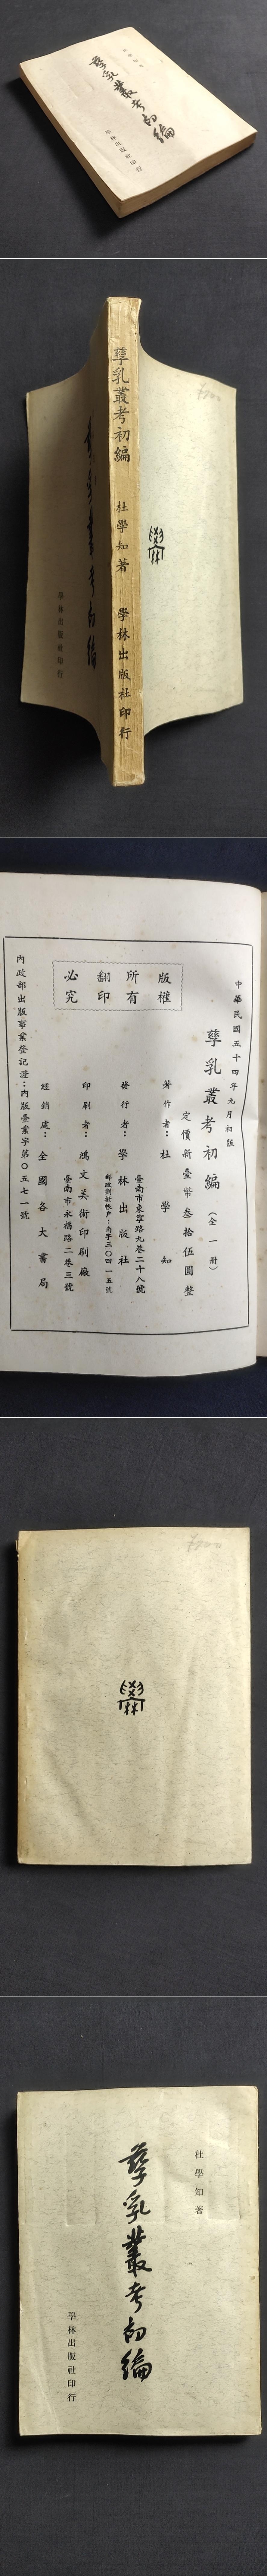 孳乳叢考初編
學林出版社印行
孳乳叢考初編 杜學知著 學林出版社印行
孳乳叢考初編
學林出版社印行
中華民國五十四年九月初版
孳乳叢考初編（全一冊）
定價新臺幣叁拾伍圓整
著作者：杜學知
臺南市東寧路九巷二十八號
發行者：學林出版社
郵政劃撥帳戶：南字三〇四一五號
印刷者：鴻文美術印刷廠
臺南市永福路二巷三號
經銷處：全國各大書局
內政部出版事業登記證：內版臺業字第〇五七一號
版權
所有
翻印
必究
杜學知著
孳乳叢考初編
學林出版社印行